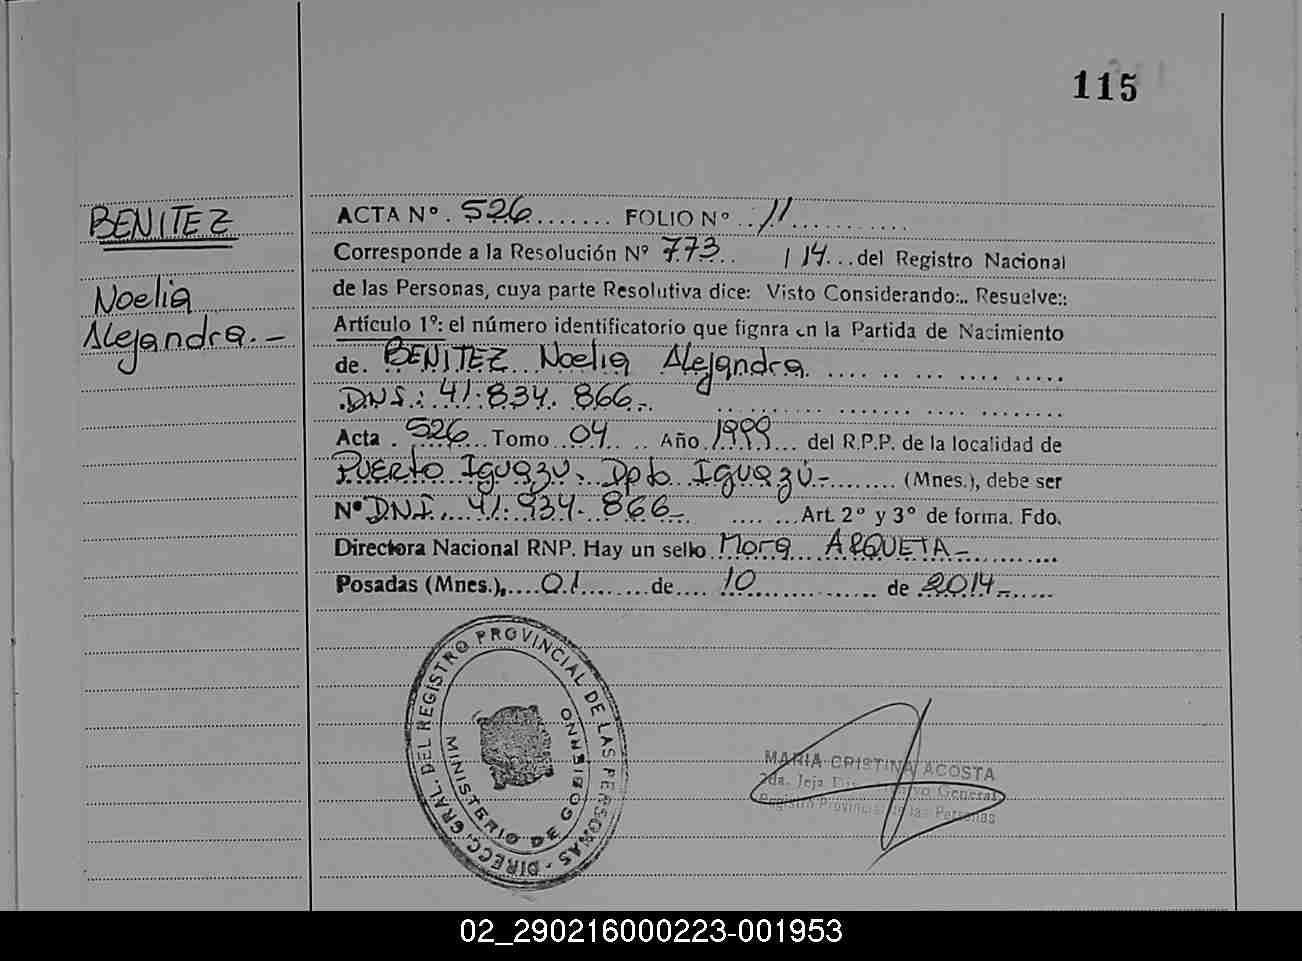 115
BENITEZ
Noelia
Alejandra.-
ACTA N°. 526 ........ FOLIO N° .. 11 ...........
Corresponde a la Resolución N° 773.. / 14...del Registro Nacional
de las Personas, cuya parte Resolutiva dice: Visto Considerando:.. Resuelve::
Artículo 1°: el número identificatorio que fignra en la Partida de Nacimiento
de. BENITEZ Noelia Alejandra. .... .. ... .... .....
DNI.: 41.834.866-.
Acta . 526 ... Tomo .. 04 .. .. Año. 1999 ... del R.P.P. de la localidad de
Puerto Iguazú. Dpto Iguazú.- ........ (Mnes.), debe ser
N° DNI. 41.934.866- .... ...Art. 2° y 3° de forma. Fdo.
Directora Nacional RNP. Hay un sello Mora ARQUETA-............
Posadas (Mnes.),....01........de.... 10 ............... de 2014-......
DIRECC. GRAL. DEL REGISTRO PROVINCIAL DE LAS PERSONAS -
MINISTERIO DE GOBIERNO
MARIA CRISTINA ACOSTA
2da. General
Registro Provincial de las Personas
02_290216000223-001953